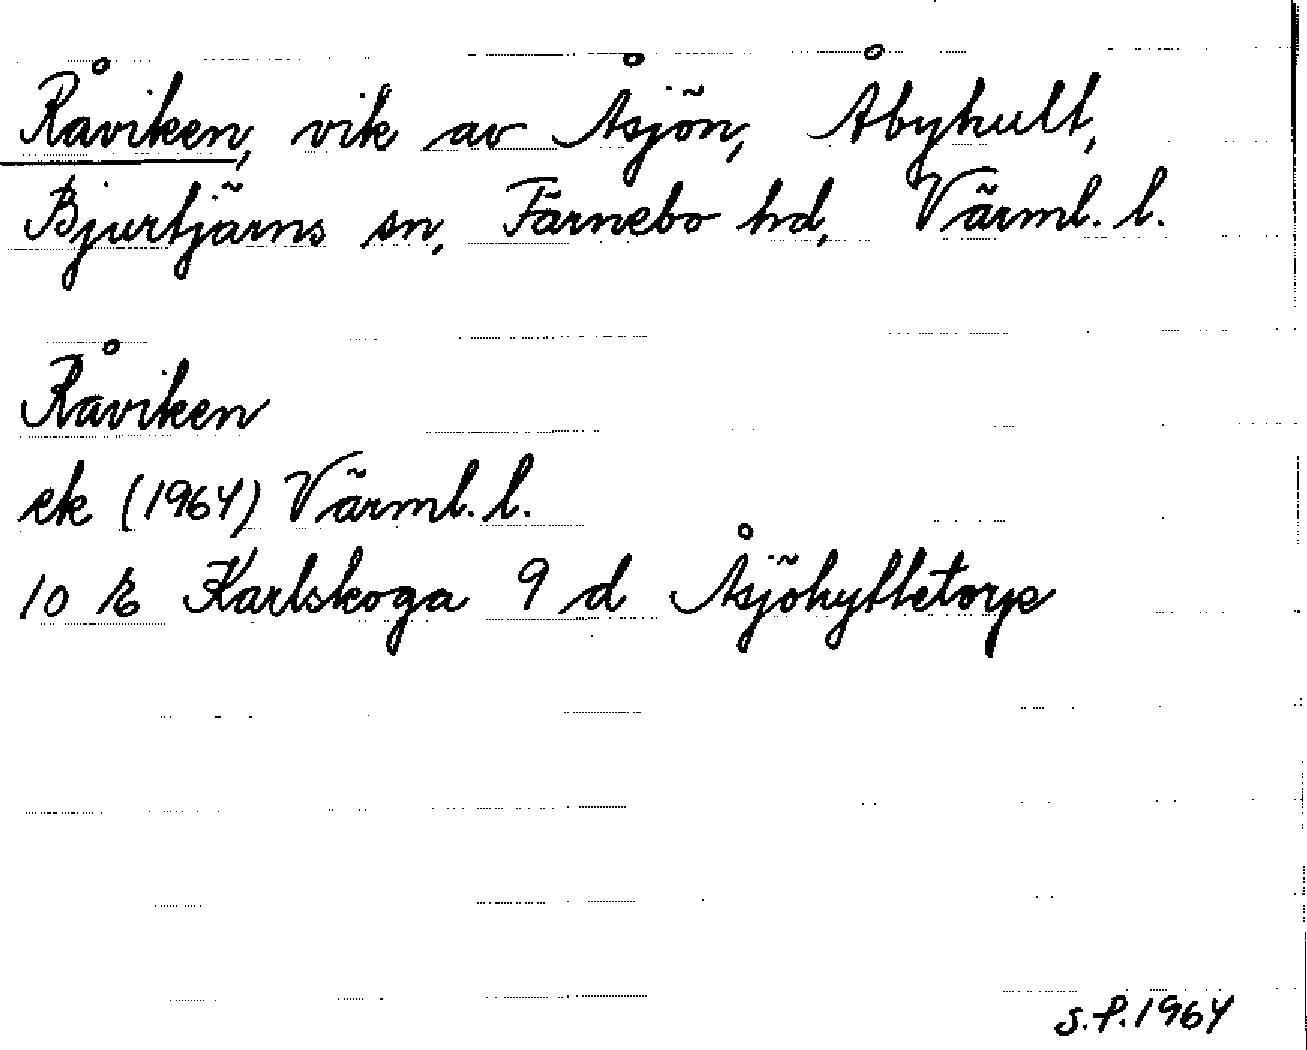 Råviken, vik av Åsjön, Åbyhult,
Bjurtjärns sn, Färnebo hd, Värml. l.
Råviken
ek (1964) Värml. l.
10 E Karlskoga 9 d Åsjöhyttetorp
S.P. 1964